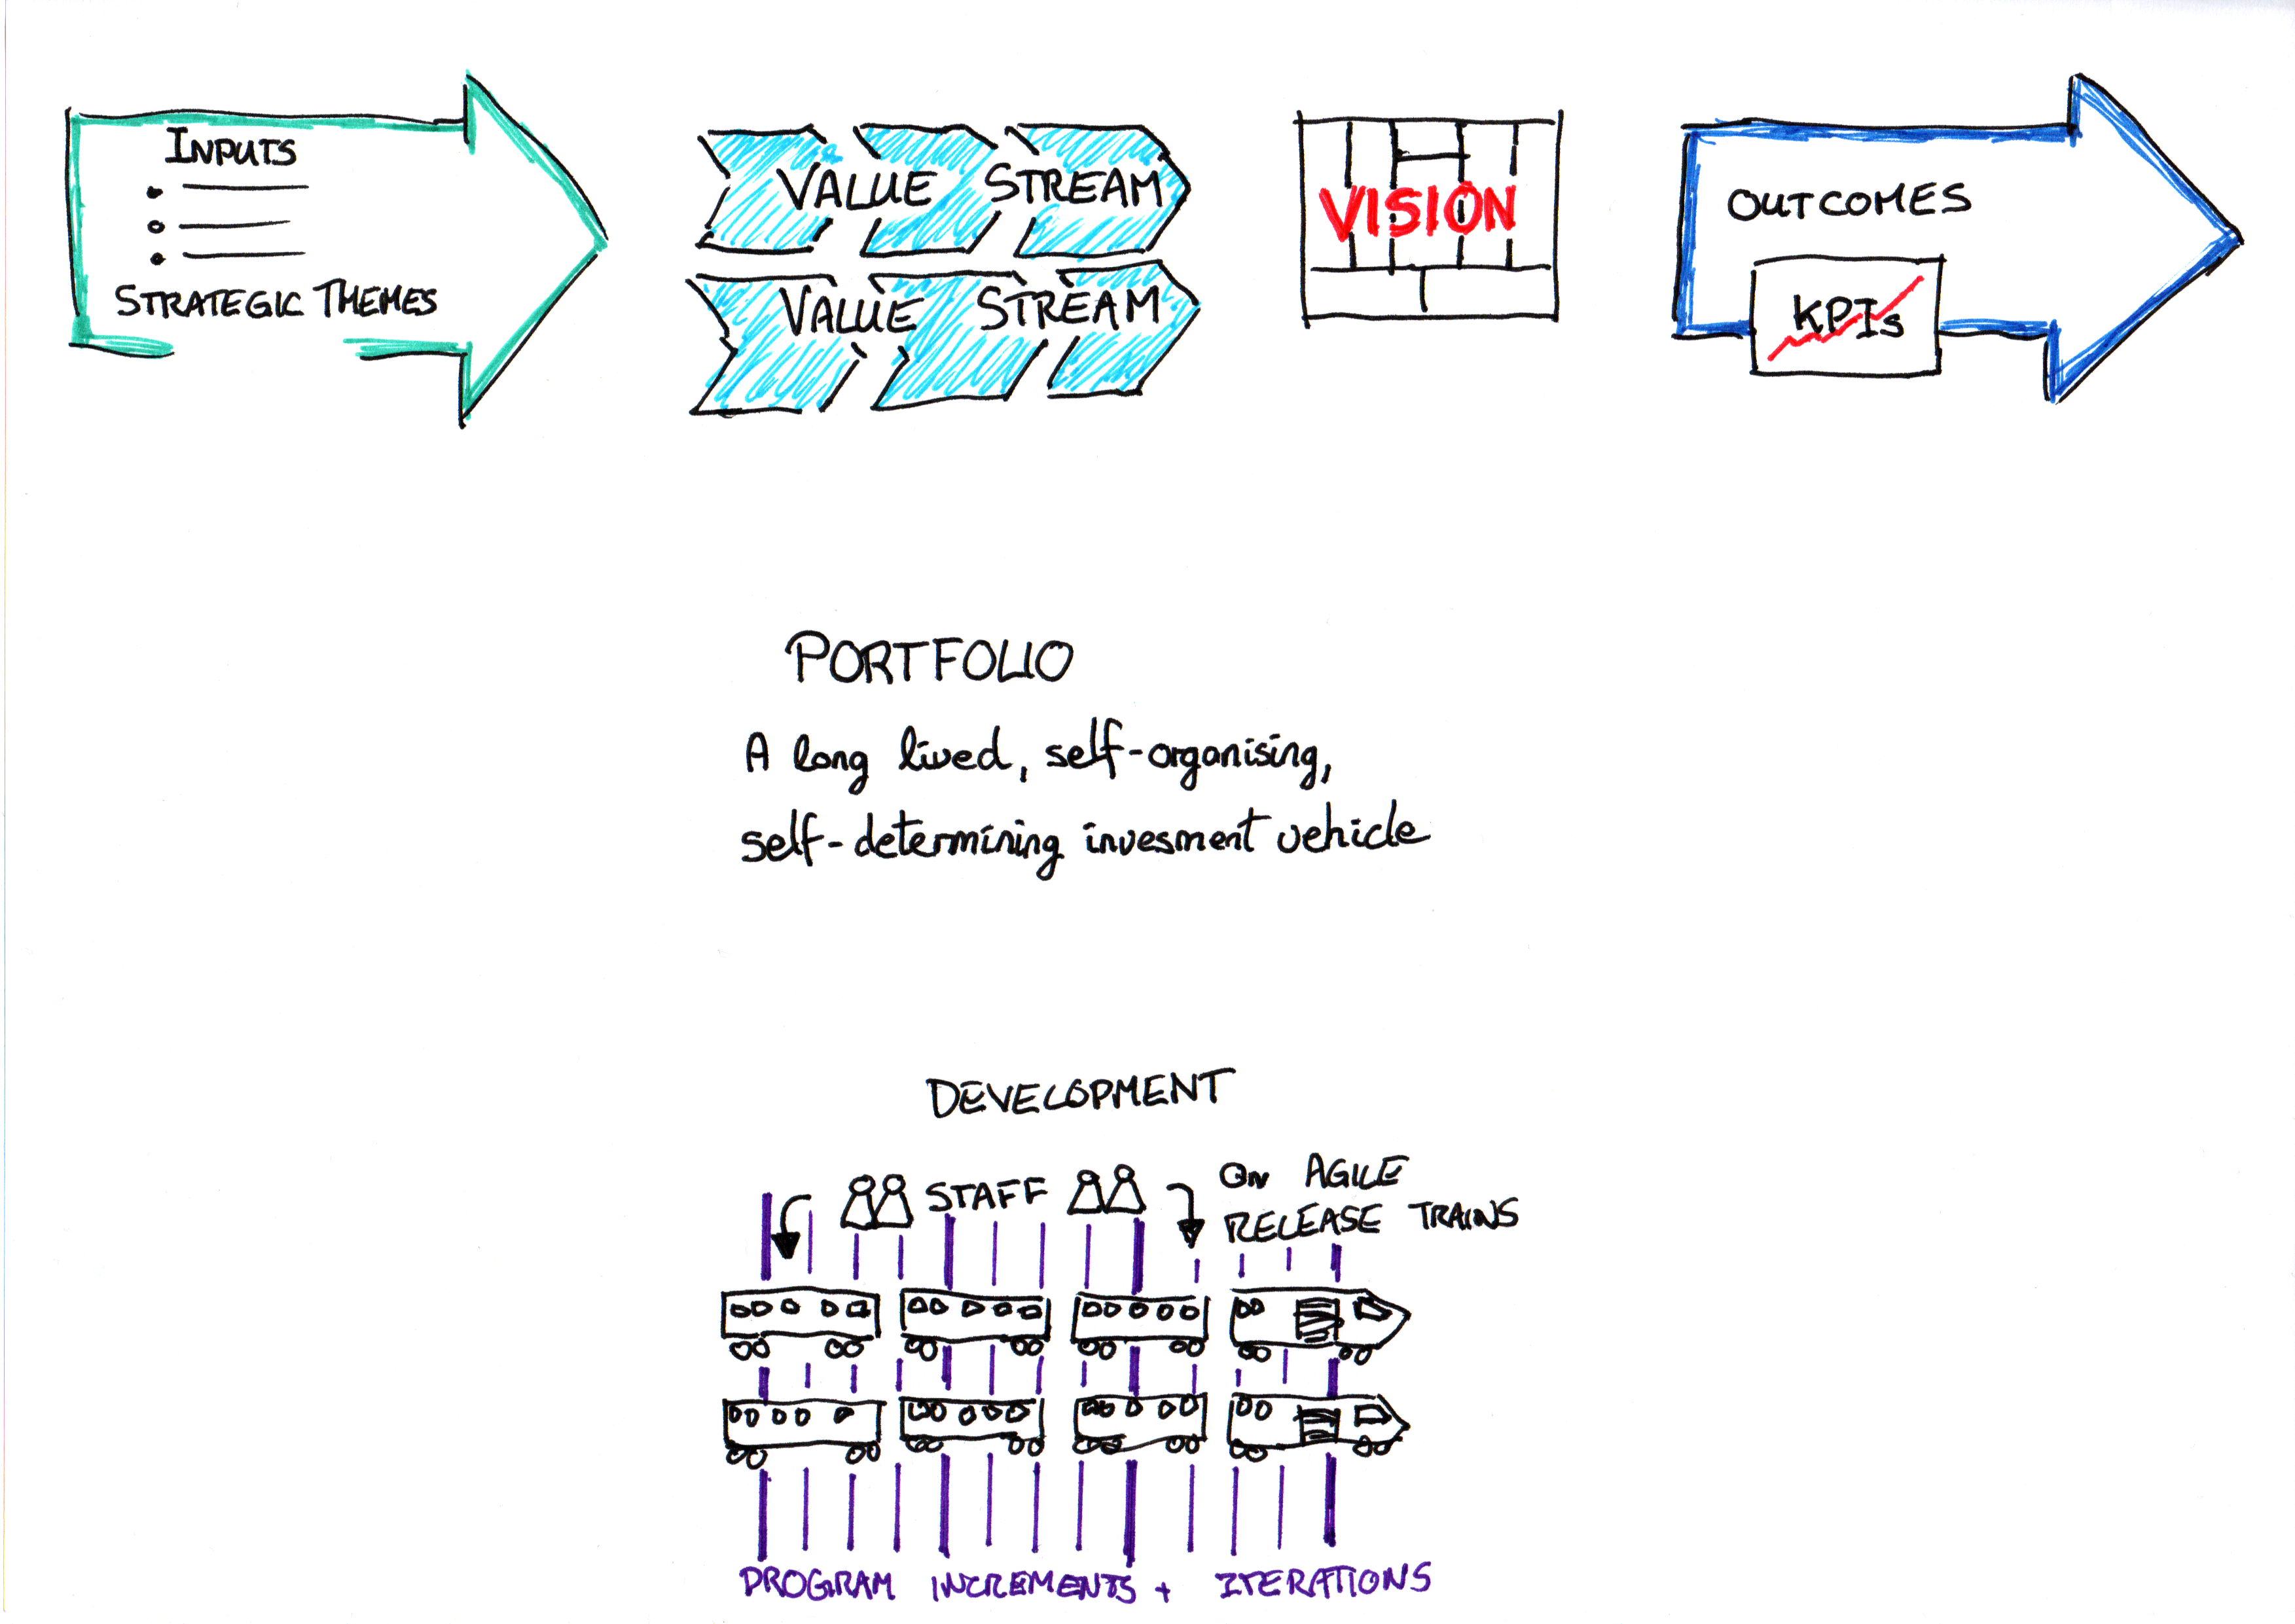 INPUTS
STRATEGIC THEMES
VALUE STREAM
VALUE STREAM
VISION
OUTCOMES
KPIs
PORTFOLIO
A long lived, self-organising,
self-determining invesment vehicle
DEVELOPMENT
STAFF
ON AGILE
RELEASE TRAINS
PROGRAM INCREMENTS + ITERATIONS